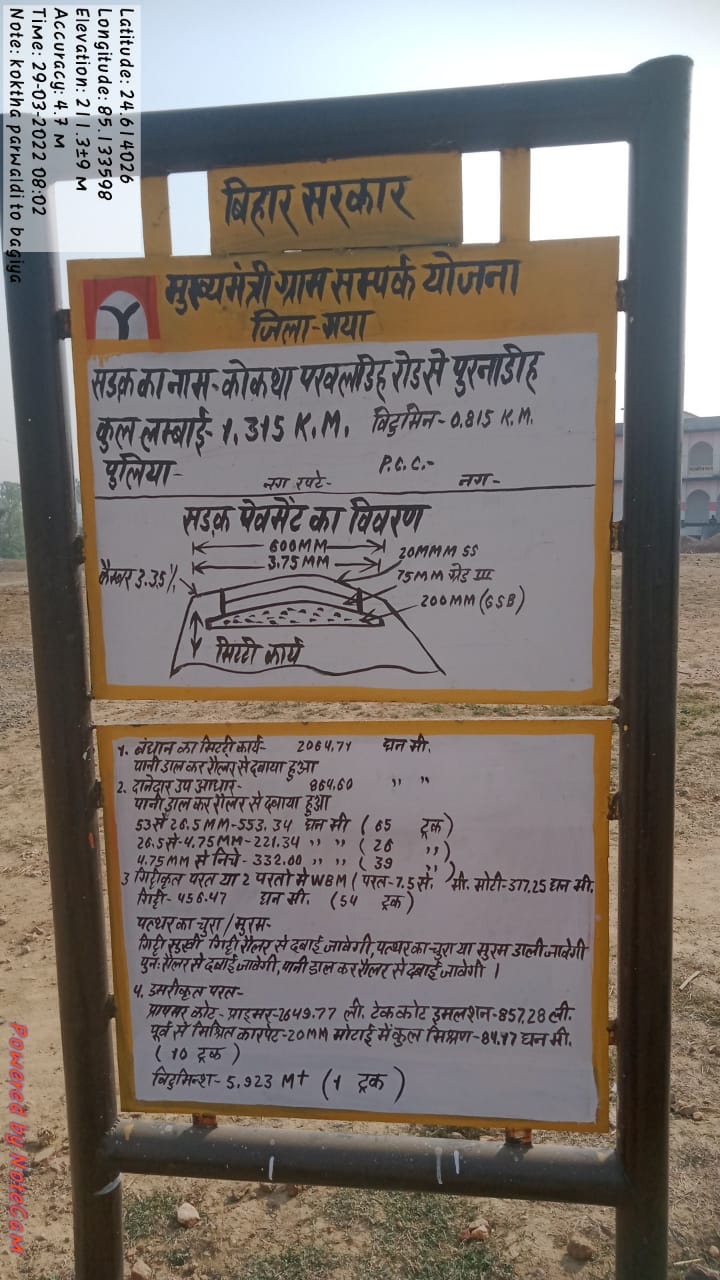 Latitude: 24.614026
Longitude: 85.133598
Elevation: 211.3±9 M
Accuracy: 4.7 M
Time: 29-03-2022 08:02
Note: koktha parwaldi to bagiya
बिहार सरकार
मुख्यमंत्री ग्राम सम्पर्क योजना
जिला-गया
सड़क का नाम-कोकथा परवलडिह रोड से पुरनाडीह
कुल लम्बाई- 1.315 K.M. विटुमिन-0.815 K.M.
पुलिया- नग रपटे- P.C.C.- नग-
सड़क पेवमेंट का विवरण
600MM
3.75MM
20MMM SS
कैम्बर 3.35%
75MM ग्रेड III
200MM (GSB)
मिटटी कार्य
1. बंधान का मिटटी कार्य- 2064.71 घन मी.
पानी डाल कर रौलर से दबाया हुआ
2. दानेदार उप आधार- 864.60 ,, ,,
पानी डाल कर रौलर से दबाया हुआ
53 से 26.5 MM-553.34 घन मी (65 ट्रक)
26.5 से-4.75MM-221.34 ,, ,, (26 ,,)
4.75MM से निचे- 332.00 ,, ,, (39 ,,)
3 गिट्टीकृत परत या 2 परतो मे WBM (परत-7.5 से. मी. मोटी-377.25 घन मी.
गिट्टी- 456.47 घन मी. (54 ट्रक)
पत्थर का चुरा/मुरम-
गिट्टी सुखी गिट्टी रौलर से दबाई जावेगी, पत्थर का चुरा या मुरम डाली जावेगी
पुनः रौलर से दबाई जावेगी, पानी डाल कर रौलर से दबाई जावेगी ।
4. डमरीकृत परत-
प्रायमर कोट- प्राइमर-2649.77 ली. टेक कोट इमलशन-857.28 ली.
पूर्व से मिश्रित कारपेट-20MM मोटाई में कुल मिश्रण-84.17 घन मी.
(10 ट्रक)
विटुमिन्श- 5.923 Mt (1 ट्रक)
Powered by NoteCam